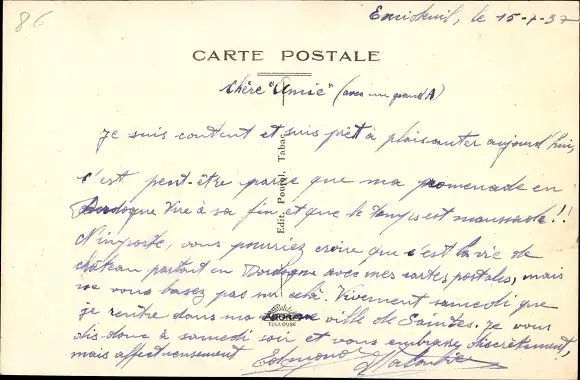 86
Excideuil, le 15-7-37
CARTE POSTALE
Chère "Amie" (avec un grand A)
Je suis content et suis prêt à plaisanter aujourd'hui,
c'est peut-être parce que ma promenade en
Dordogne tire à sa fin et que le temps est maussade !!
N'importe, vous pourriez croire que c'est la vie de
château partout en Dordogne avec mes cartes postales, mais
ne vous basez pas sur celà. Vivement samedi que
je rentre dans ma ville de Saintes. Je vous
dis donc à samedi soir et vous embrasse discrètement,
mais affectueusement Edmond
Edit. Pouget, Tabac
TOULOUSE